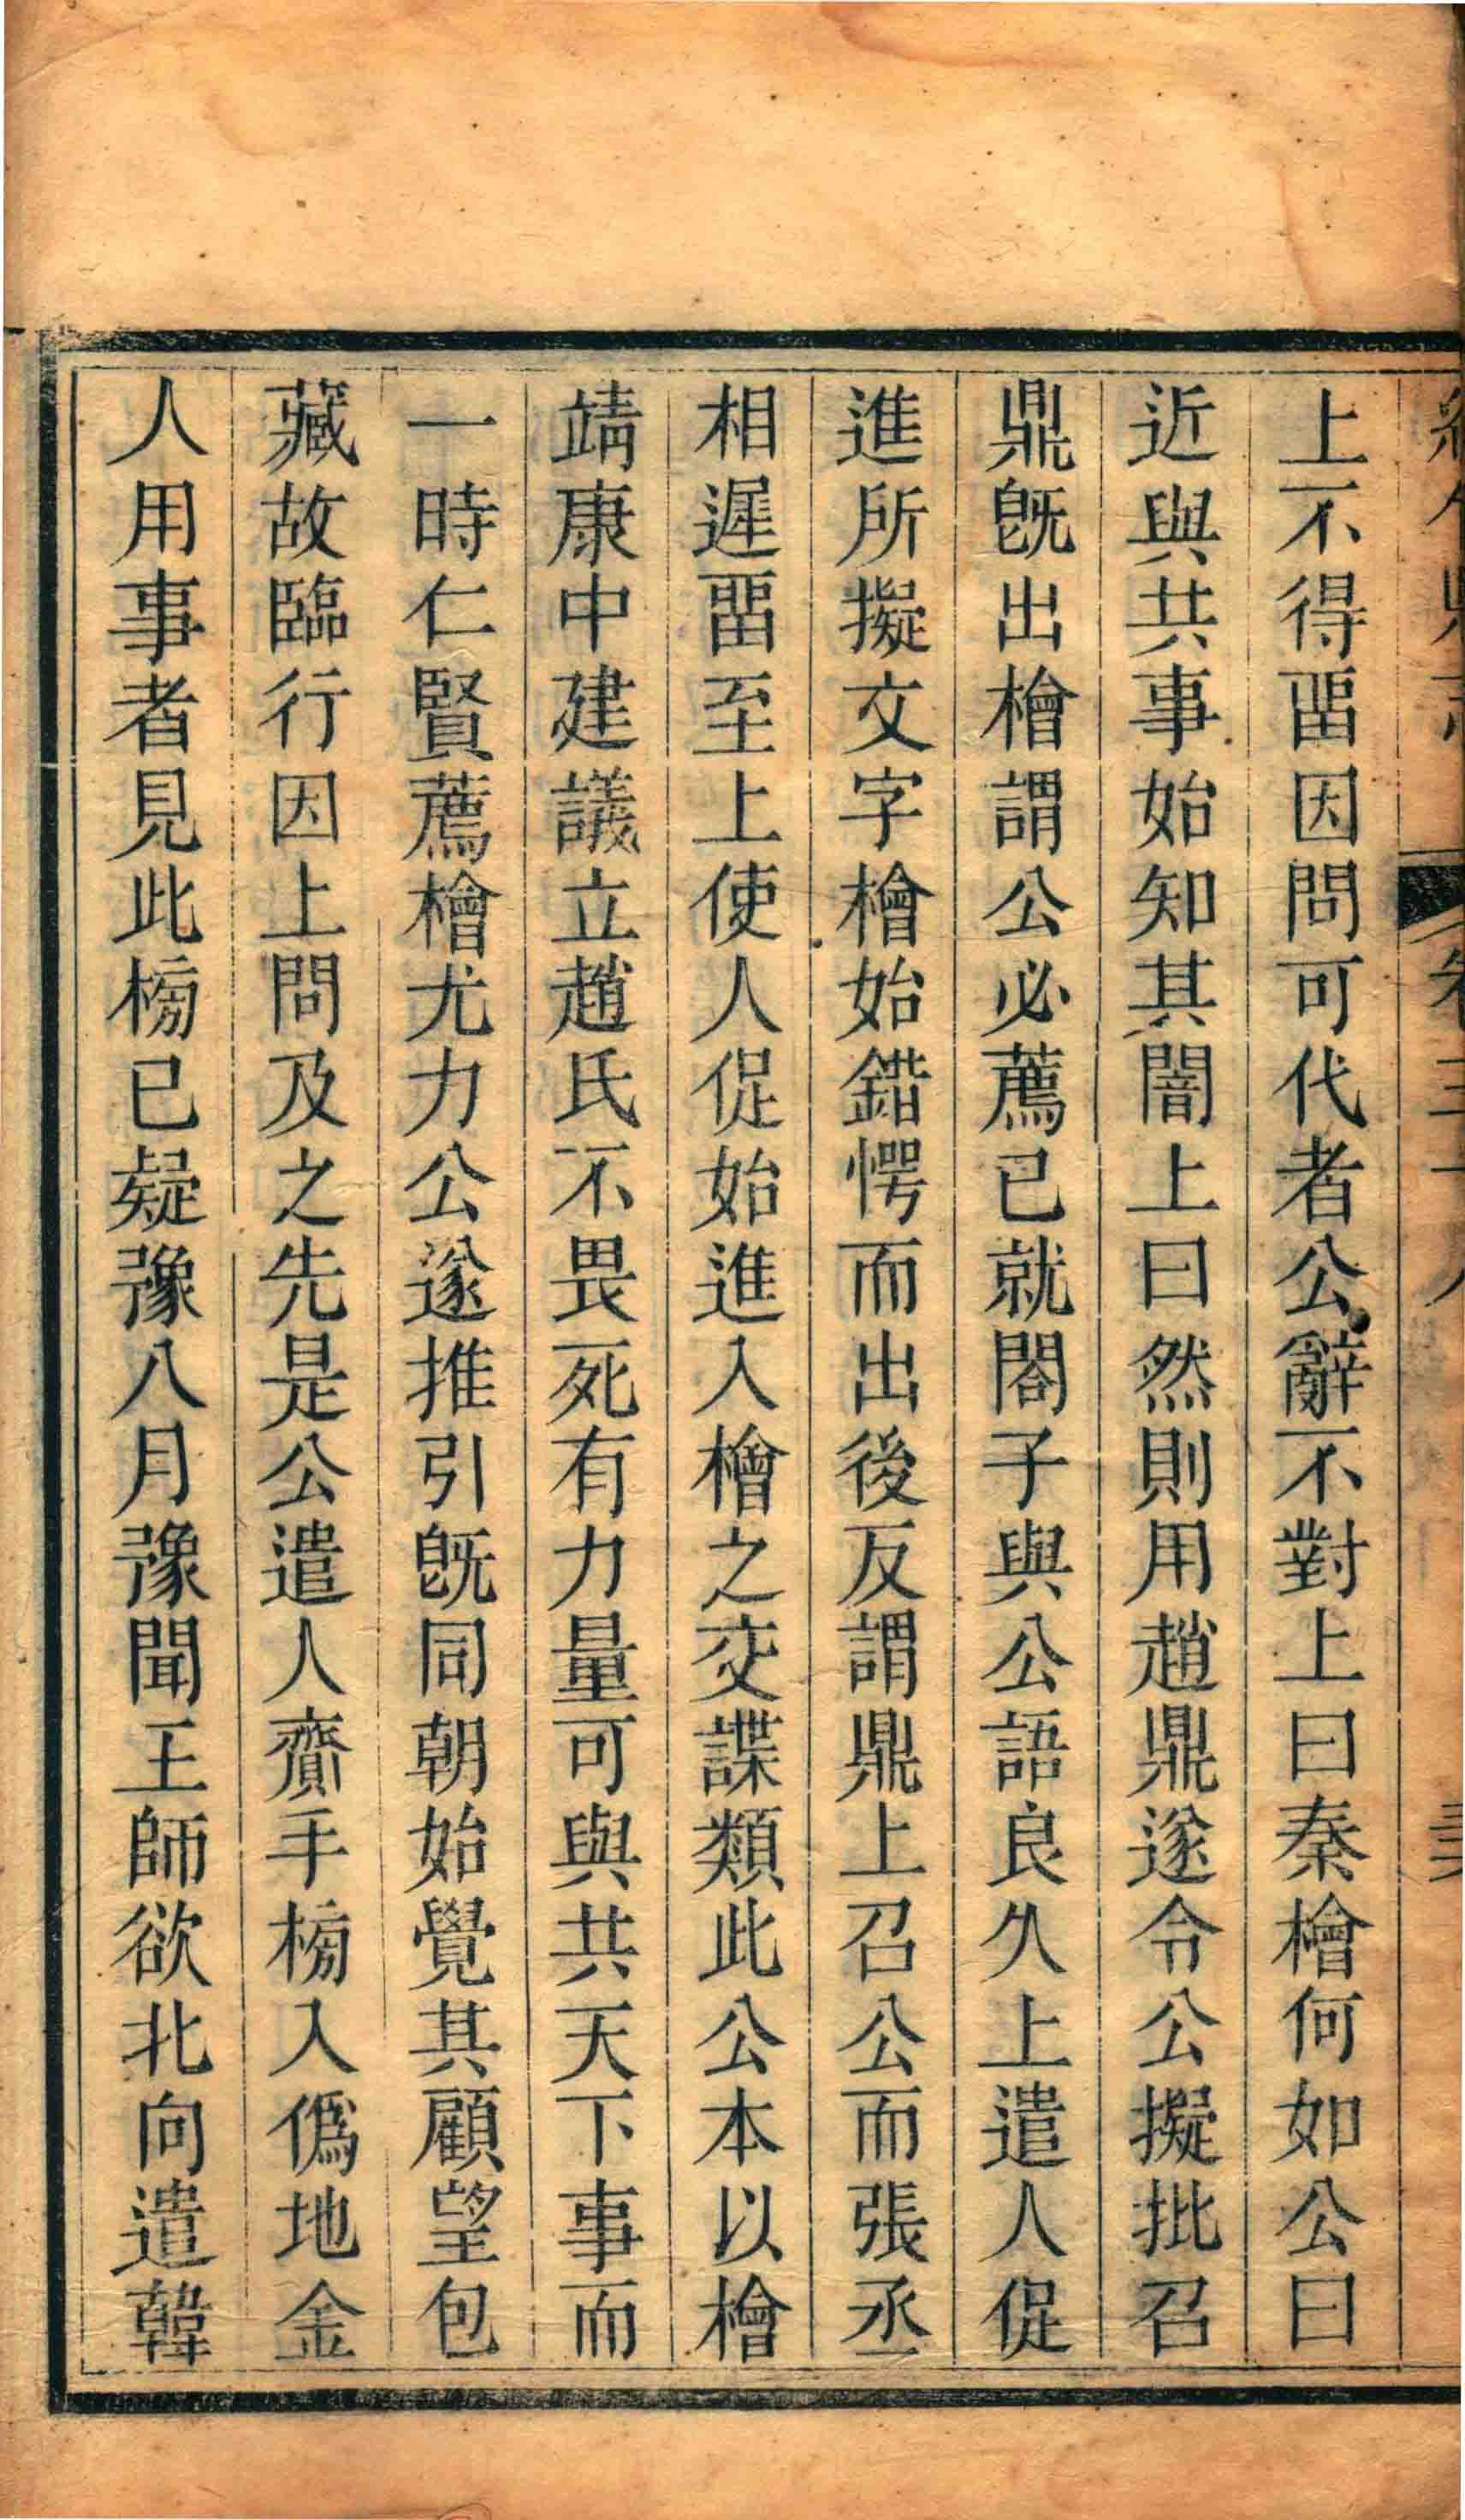 上不得畱因問可代者公辭不對上曰秦檜何如公曰
近與共事始知其闇上曰然則用趙鼎遂令公擬批召
鼎旣出檜謂公必薦已就閤子與公語良久上遣人促
進所擬文字檜始錯愕而出後反謂鼎上召公而張丞
相遲畱至上使人促始進入檜之交諜類此公本以檜
靖康中建議立趙氏不畏死有力量可與共天下事而
一時仁賢薦檜尤力公遂推引旣同朝始覺其顧望包
藏故臨行因上問及之先是公遣人齎手榜入僞地金
人用事者見此榜已疑豫八月豫聞王師欲北向遣韓